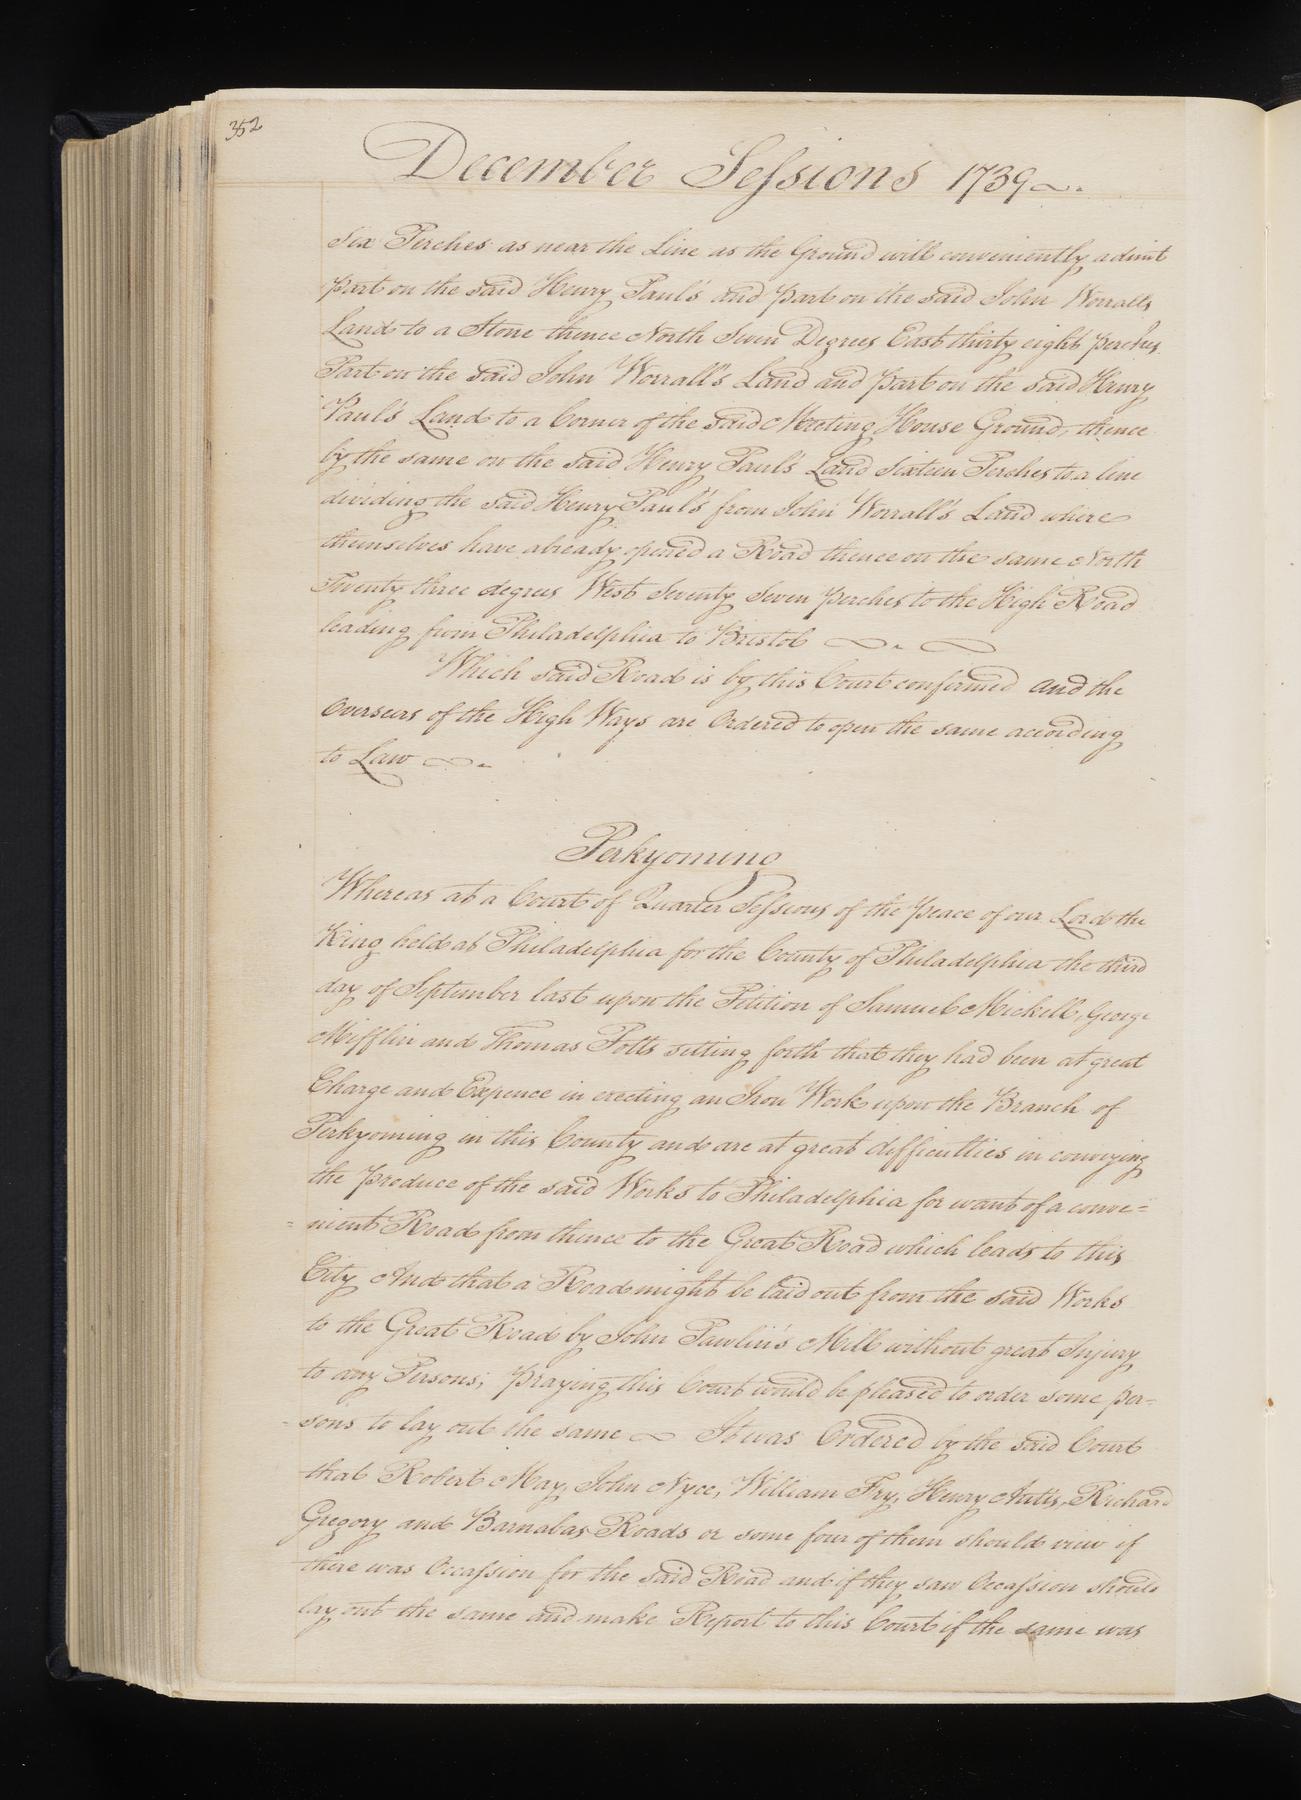 352
December Sessions 1739
Six Perches as near the Line as the Ground will conveniently admit
part on the said Henry Paul's and part on the said John Worralls
Land to a Stone thence North Seven Degrees East thirty eight perches
Part on the said John Worrall's Land and part on the said Henry
Paul's Land to a Corner of the said Meeting House Ground, thence
by the same on the said Henry Paul's Land Sixteen Perches to a line
dividing the said Henry Paul's from John Worrall's Land where
themselves have already opened a Road thence on the same North
Twenty three degrees West Seventy Seven perches to the High Road
leading from Philadelphia to Bristol
Which said Road is by this Court confirmed and the
Overseers of the High Ways are Ordered to open the same according
to Law
Perkyoming
Whereas at a Court of Quarter Sessions of the peace of our Lord the
King held at Philadelphia for the County of Philadelphia the third
day of September last upon the Petition of Samuel Mickell, George
Mifflin and Thomas Potts setting forth that they had been at great
Charge and Expence in erecting an Iron Work upon the Branch of
Perkyoming in this County and are at great difficulties in conveying
the produce of the said Works to Philadelphia for want of a conve=
=nient Road from thence to the Great Road which leads to this
City And that a Road might be laid out from the said Works
to the Great Road by John Pawlin's Mill without great Injury
to any Persons; praying this Court would be pleased to order some per-
-sons to lay out the same It was Ordered by the said Court
that Robert May, John Nyce, William Fry, Henry Antis, Richard
Gregory and Barnabas Roads or some four of them should view if
there was Occassion for the said Road and if they saw Occassion should
lay out the same and make Report to this Court if the same was